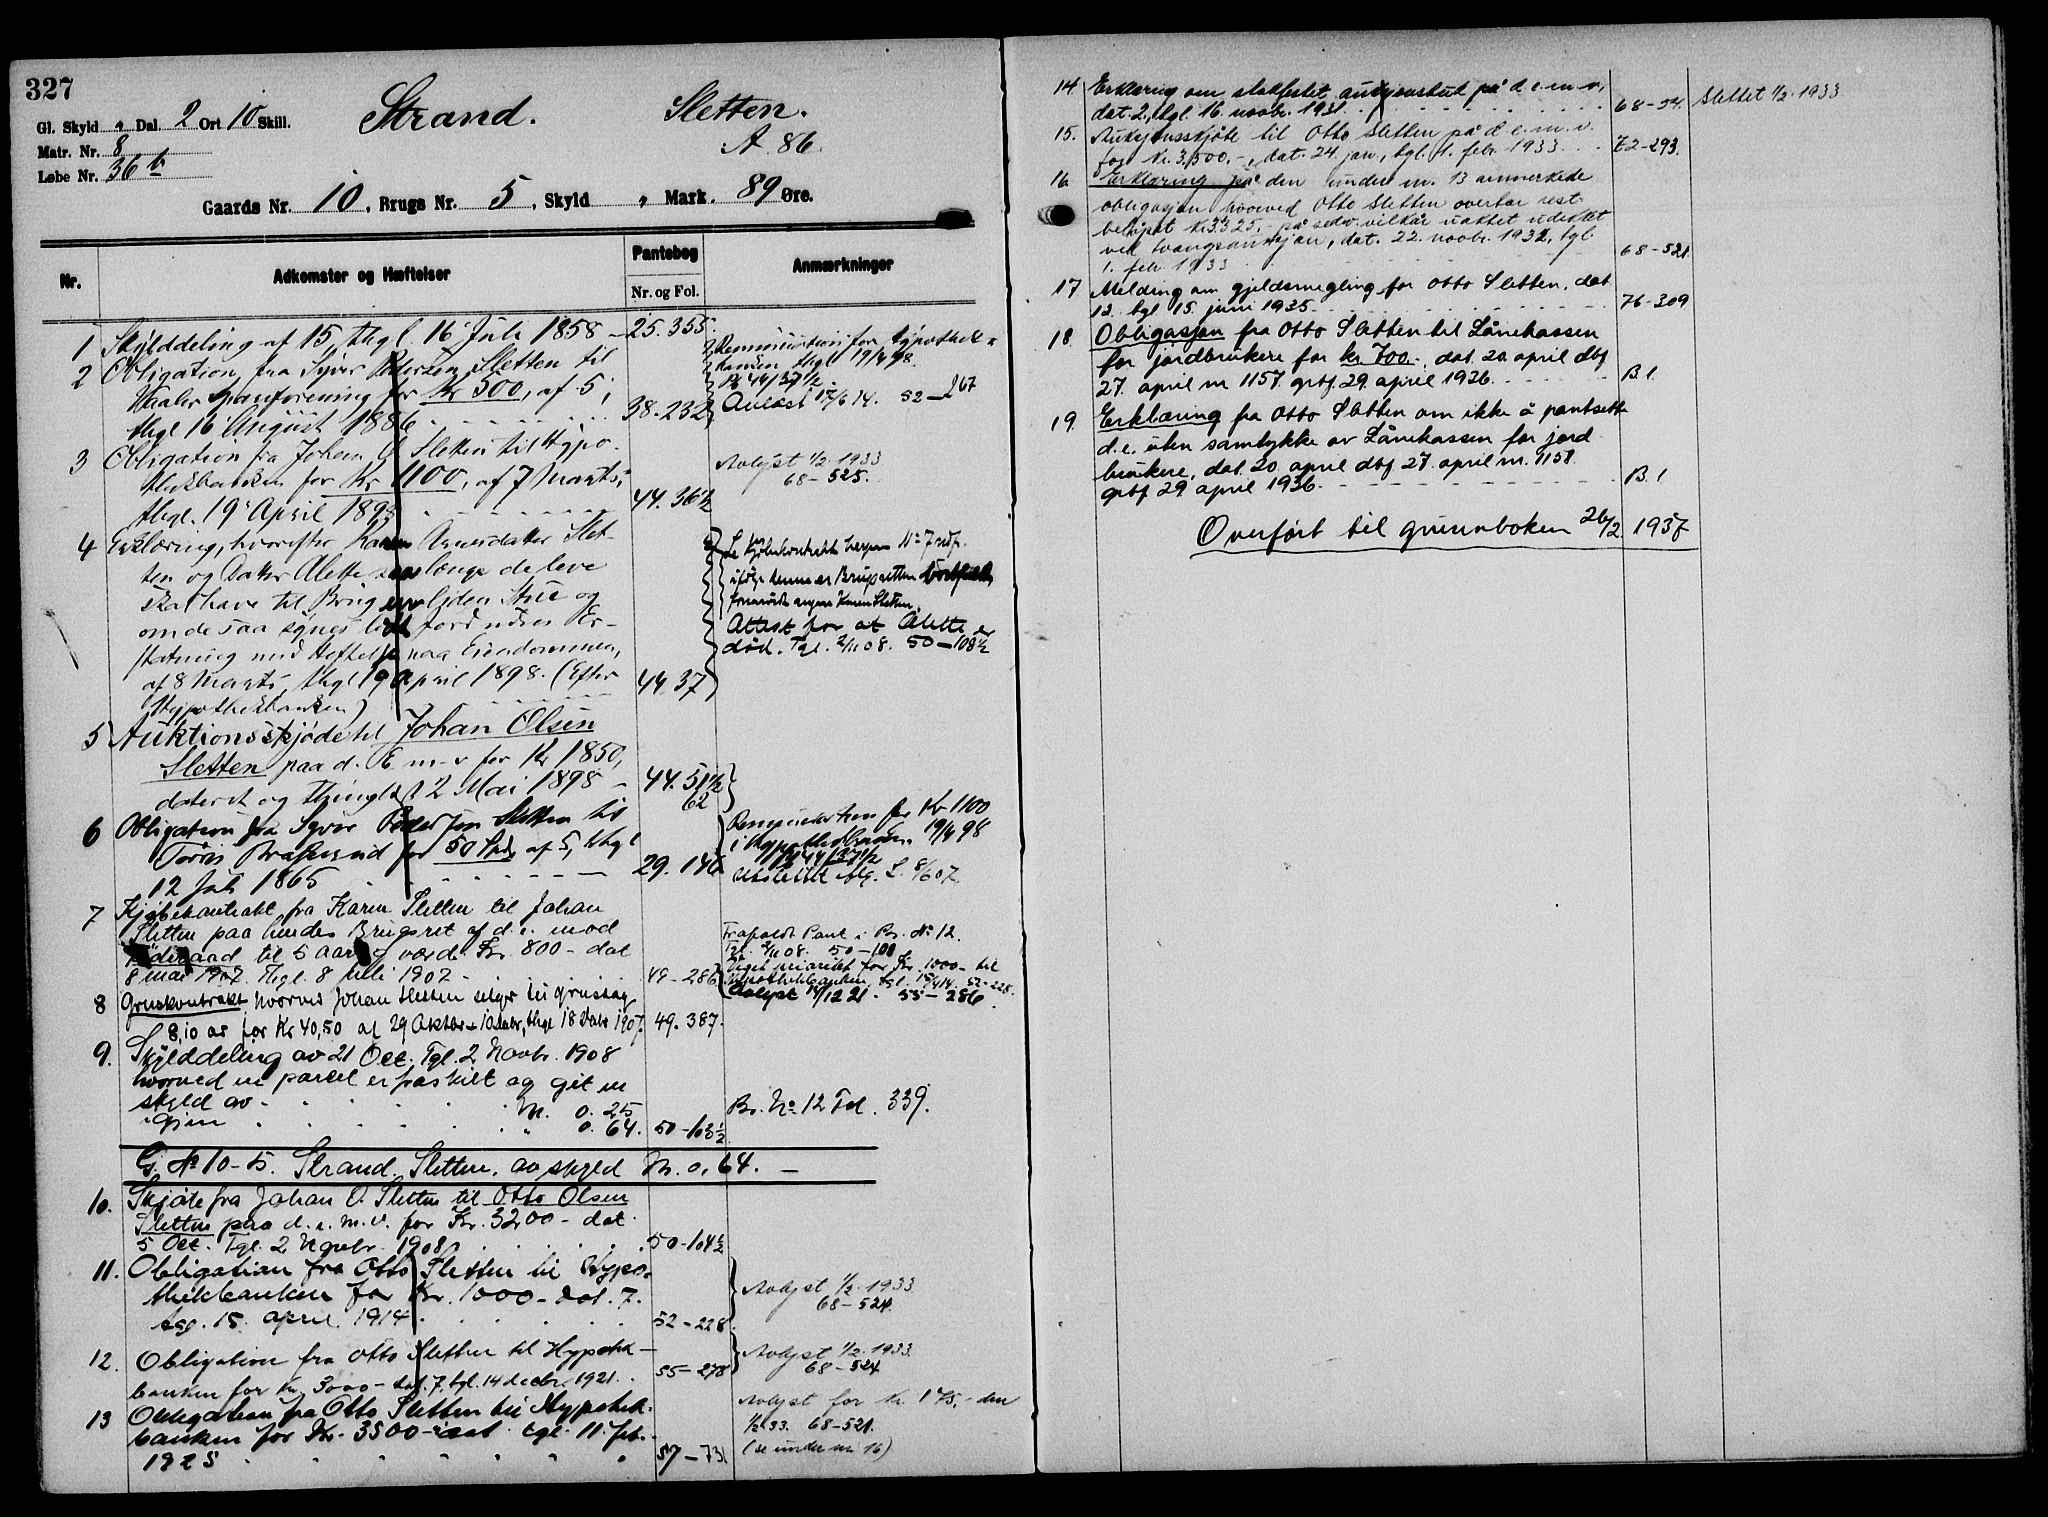 327
Gl. Skyld „ Dal. 2 Ort 10 Skill.
Matr. Nr. 8
Løbe Nr. 36 b
Strand. Sletten.
A. 86.
Gaards Nr. 10, Brugs Nr. 5, Skyld „ Mark. 89 Øre.
Nr. Adkomster og Hæftelser Pantebog Anmærkninger
Nr. og Fol.
1 Skylddeling af 15, thgl. 16 Juli 1858 25.355.
2 Obligation fra Syver Pedersen Sletten til
Vaaler Spareforening for Kr 500, af 5,
thgl 16 August 1886 38.232
Renunciation for Hypothek-
banken thgl 19/4 98.
Pb 44/37½.
Avlæst 17/6 14. 52-267
3 Obligation fra Johan O. Sletten til Hypo-
thekbanken for Kr 1100, af 7 Marts,
thgl. 19 April 1898 44.36½
Avlyst 1/2-1933
68-525.
4 Erklæring, hvorefter Karen Arnesdatter Slet-
ten og Datter Alette saalænge de leve
skal have til Brug en liden Stue og
om de saa synes lidt Jord uden Er-
statning med Heftelse paa Eiendommen,
af 8 Marts, thgl 19 April 1898. (Efter
Hypothekbanken) 44.37
Se Kjøbekontrakt herpaa No 7 ndf.
ifølge denne er Brugsretten bortfaldt
forsaavidt angaar Karen Sletten.
Attest for at Alette er
død. Tgl. 2/11 08. 50-108½
5 Auktionsskjøde til Johan Olsen
Sletten paa d. E m-v for Kr 1850,
dateret og thinglæst 2 Mai 1898 44.51½
62
6 Obligation fra Syver Pedersen Sletten til
for 50 Spd, af 5, thgl
12 Juli 1865 29.146
Renunciation for Kr 1100
i Hypothekbanken 19/4 98
Pb 44/37½
Udslettet 8/6 07.
7 Kjøbekontrakt fra Karen Sletten til Johan
Sletten paa hendes Brugsret af d. e. mod
til 5 aarig værdi Kr. 800 - dat
8 mai 1907. Thgl. 8 juli 1907 - 49-286
Frafaldt Pant i Br. No 12.
Tgl. 2/11 08. 50-108
Viget prioritet for Kr. 1000 - til
Hypothekbanken, tgl. 15/4 14. 52-228.
Avlyst 14/12 21. 55-286.
8 Gruskontrakt hvorved Johan Sletten selger til grustag
8,10 ar for Kr 40,50 af 29 Oktbr + 10 , thgl 18 1907. 49.387.
9. Skylddeling av 21 Oct. Tgl. 2 Novbr. 1908
hvorved en parcel er fraskilt og git en
skyld av M. 0.25 Br. No 12 Fol. 339.
igjen „ 0.64. 50-103½
G. No 10-5. Strand, Sletten, av skyld M. 0.64. -
10. Skjøte fra Johan O. Sletten til Otto Olsen
Sletten paa d. e. m. v. for Kr. 3200 - dat
5 Oct. Tgl. 2 Novbr. 1908 50-104½
11. Obligation fra Otto Sletten til Hypo-
thekbanken for Kr. 1000 - dat. 7.
tgl. 15. april 1914. 52-228.
Avlyst 1/2-1933
68-524.
12. Obligation fra Otto Sletten til Hypothek-
banken for Kr. 3000 - dat. 7, tgl. 14 decbr. 1921. 55-278
Avlyst 1/2-1933.
68-524
13 Obligation fra Otto Sletten til Hypothek-
banken for Kr. 3500 - dat tgl. 11. feb.
1925 57-731
Avlyst for kr. 175,- den
1/2 33. 68-521.
(se under nr 16)
14 Erklæring om stadfestet auksjonsbud på d.e.m.v,
dat. 2., tgl. 16. novbr. 1931. 68-54. Slettet 1/2-1933
15. Auksjonsskjøte til Otto Sletten på d.e.m.v.
for Kr. 3,500,-, dat. 24. jan., tgl. 1. febr. 1933 72-293.
16 Erklæring på den under nr. 13 anmerkede
obligasjon hvorved Otto Sletten overtar rest-
beløpet kr 3325,- på sedv. vilkår uaktet udekket
ved tvangsauksjon, dat. 22. novbr. 1932, tgl.
1. febr 1933 68-521.
17 Melding om gjeldsmegling for Otto Sletten, dat
12. tgl 15. juni 1935 76-309
18. Obligasjon fra Otto Sletten til Lånekassen
for jordbrukere for kr 700.- dat. 20. april dbf
27. april nr 1157 grbf. 29. april 1936. B.1.
19. Erklæring fra Otto Sletten om ikke å pantsette
d.e. uten samtykke av Lånekassen for jord-
brukere, dat. 20. april dbf. 27. april nr. 1158.
grbf 29 april 1936. B.1
Overført til grunnboken 26/2 1937